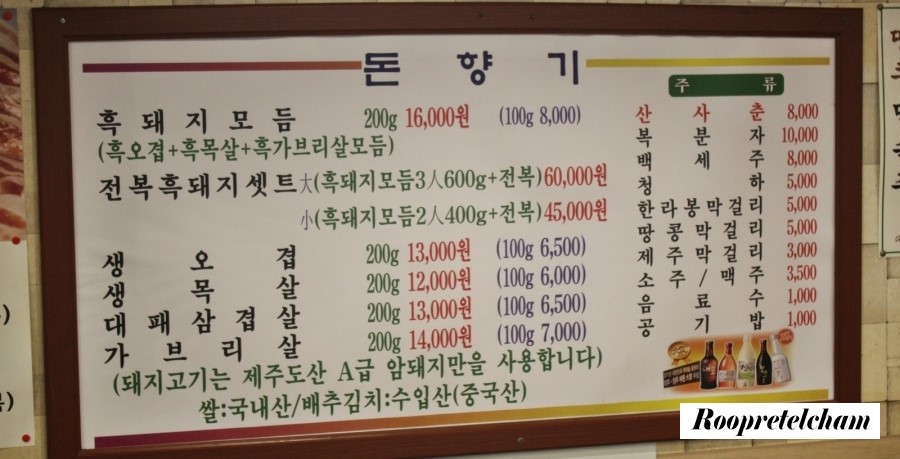 돈향기
흑돼지모듬 200g 16,000원 (100g 8,000)
(흑오겹+흑목살+흑가브리살모듬)
전복흑돼지셋트大(흑돼지모듬3人600g+전복)60,000원
小(흑돼지모듬2人400g+전복)45,000원
생오겹 200g 13,000원 (100g 6,500)
생목살 200g 12,000원 (100g 6,000)
대패삼겹살 200g 13,000원 (100g 6,500)
가브리살 200g 14,000원 (100g 7,000)
(돼지고기는 제주도산 A급 암돼지만을 사용합니다)
쌀:국내산/배추김치:수입산(중국산)
주류
산사춘 8,000
복분자 10,000
백세주 8,000
청하 5,000
한라봉막걸리 5,000
땅콩막걸리 5,000
제주막걸리 3,000
소주/맥주 3,500
음료수 1,000
공기밥 1,000
Roopretelcham